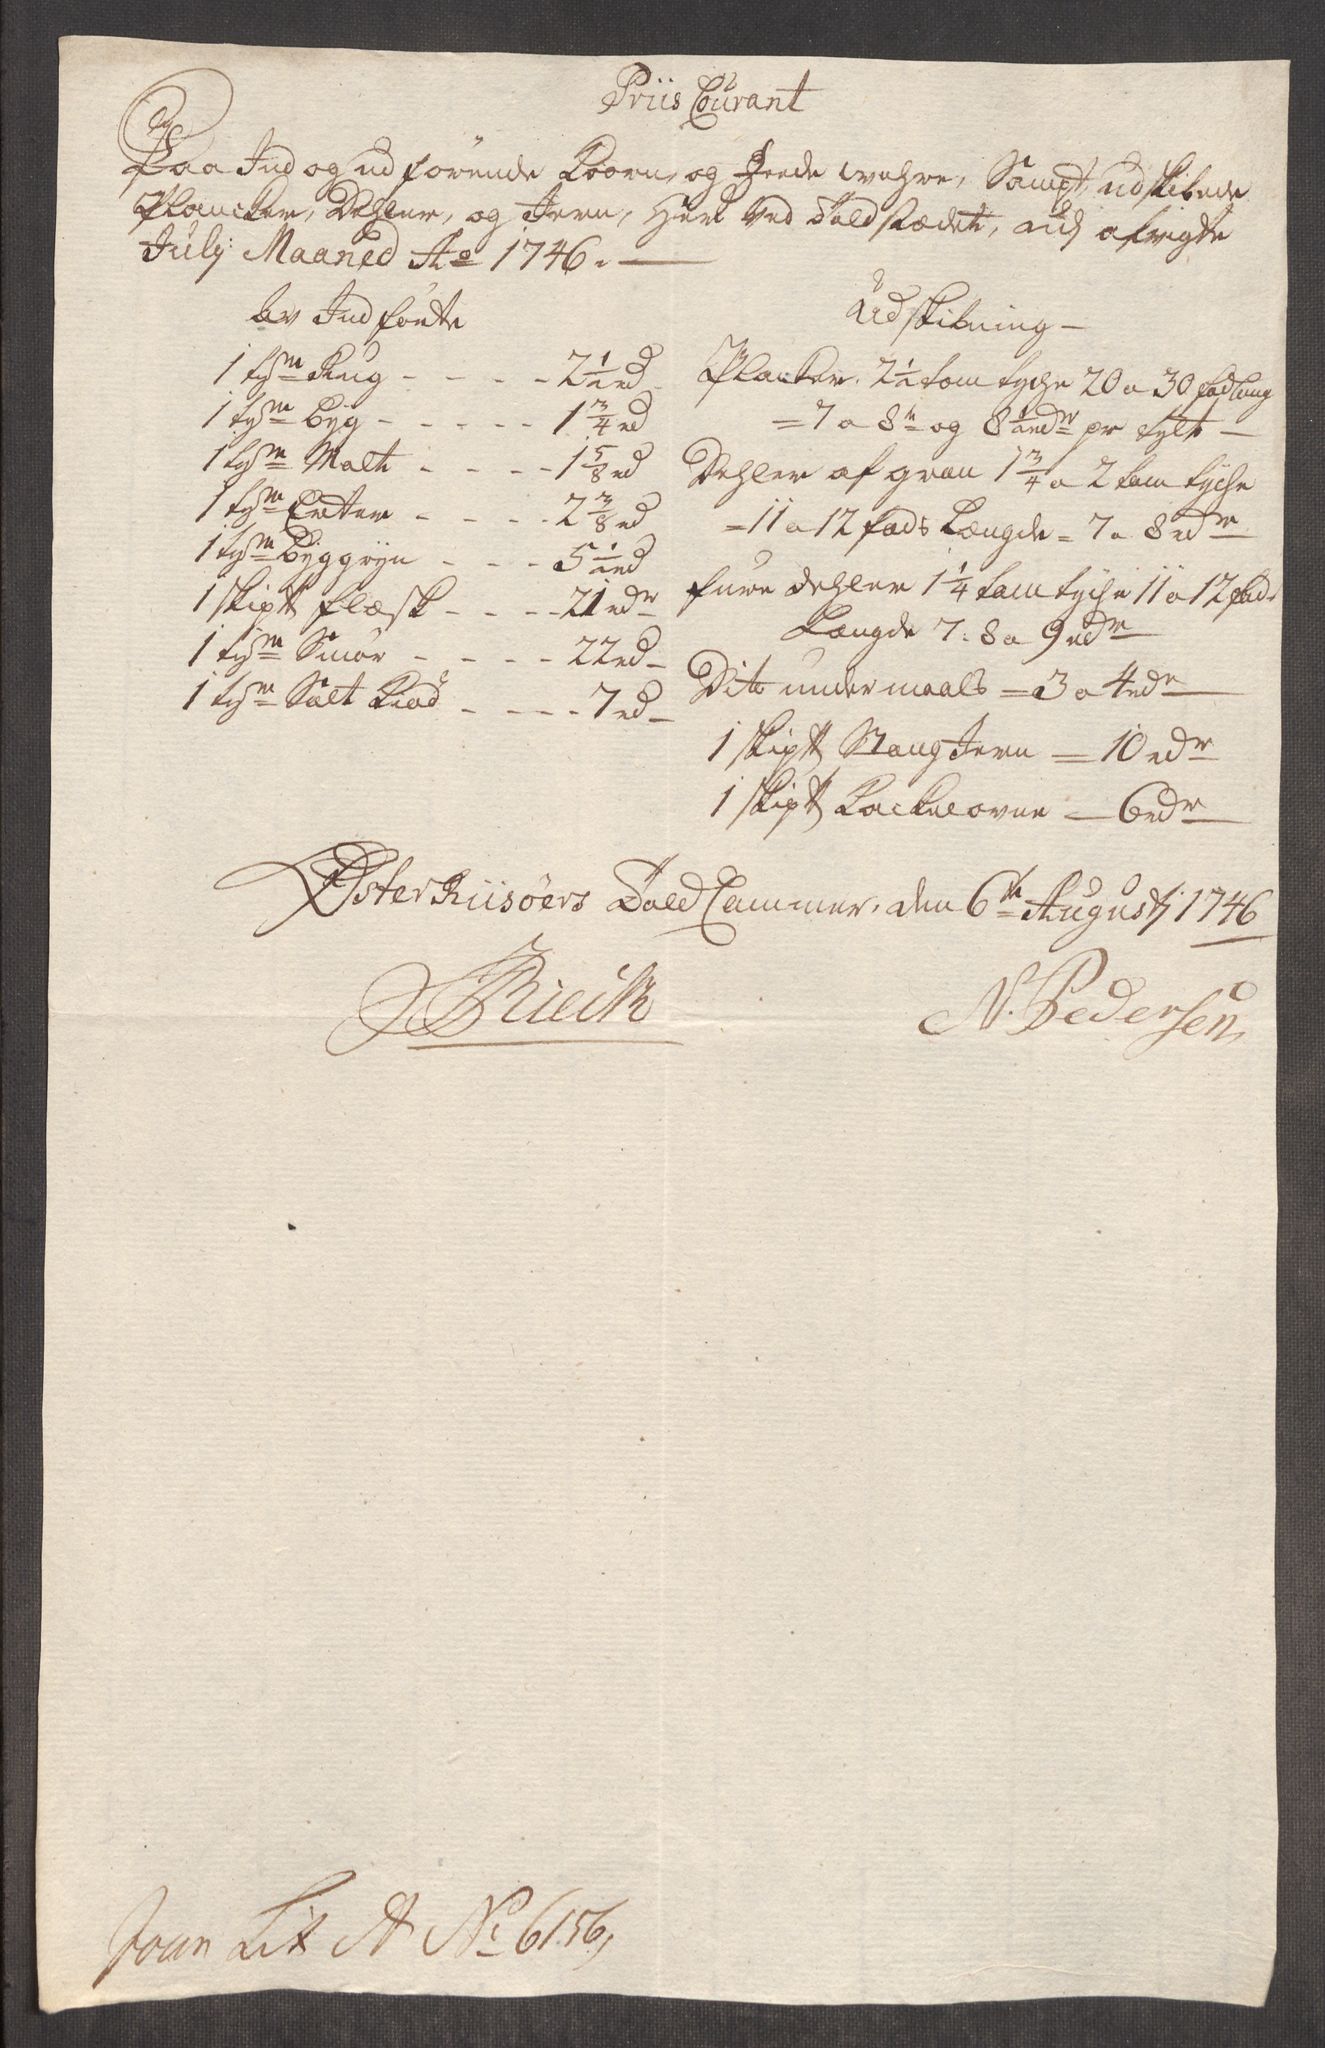 Priis Courant
Paa Ind og ud förende Koorn, og Feede wahre, Sampt udskibede
Plancker, Dehler, og Jern, Her Ved Toldstædet, udj afvigte
Julij Maaned Ao 1746.
Indförte
1 tynn Rug - - - - 2 1/2 rd
1 tynn Byg - - - - - 1 3/4 rd
1 tynn Malt - - - - 1 5/8 rd
1 tynn Erter - - - - 2 3/8 rd
1 tynn Byggryn - - - 5 1/2 rd
1 skipt flæsk - - - - 21 rdr
1 tynn Smör - - - - 22 rd
1 tynn Salt Kiöd - - - - 7 rd
Udskibning
Plancker. 2 1/2 tom tyche 20 a 30 fod lang
= 7 a 8 og 8 1/2 rdr pr tylt
Dehler af gran 1 3/4 a 2 tom tyche
= 11 a 12 fods Længde = 7 a 8 rdr
fure dehler 1 1/4 tom tyche 11 a 12 fods
Længde 7. 8 a 9 rdr
Dito undermaals = 3 a 4 rdr
1 skipt Stang Jern = 10 rdr
1 skipt Kackelovne — 6 rdr
ØsterRiisöers Told Cammer, den 6te Augustj 1746
N. Pedersen
Lit A No 6156,